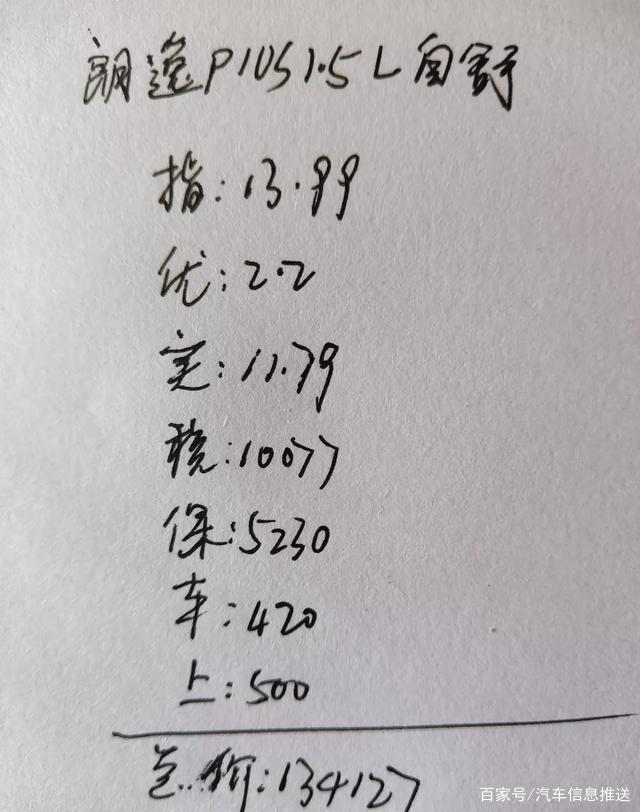 朗逸plus1.5L自舒
指:13.99
优:2.2
实:11.79
税:10077
保:5230
车:420
上:500
总价:134127
百家号/汽车信息推送